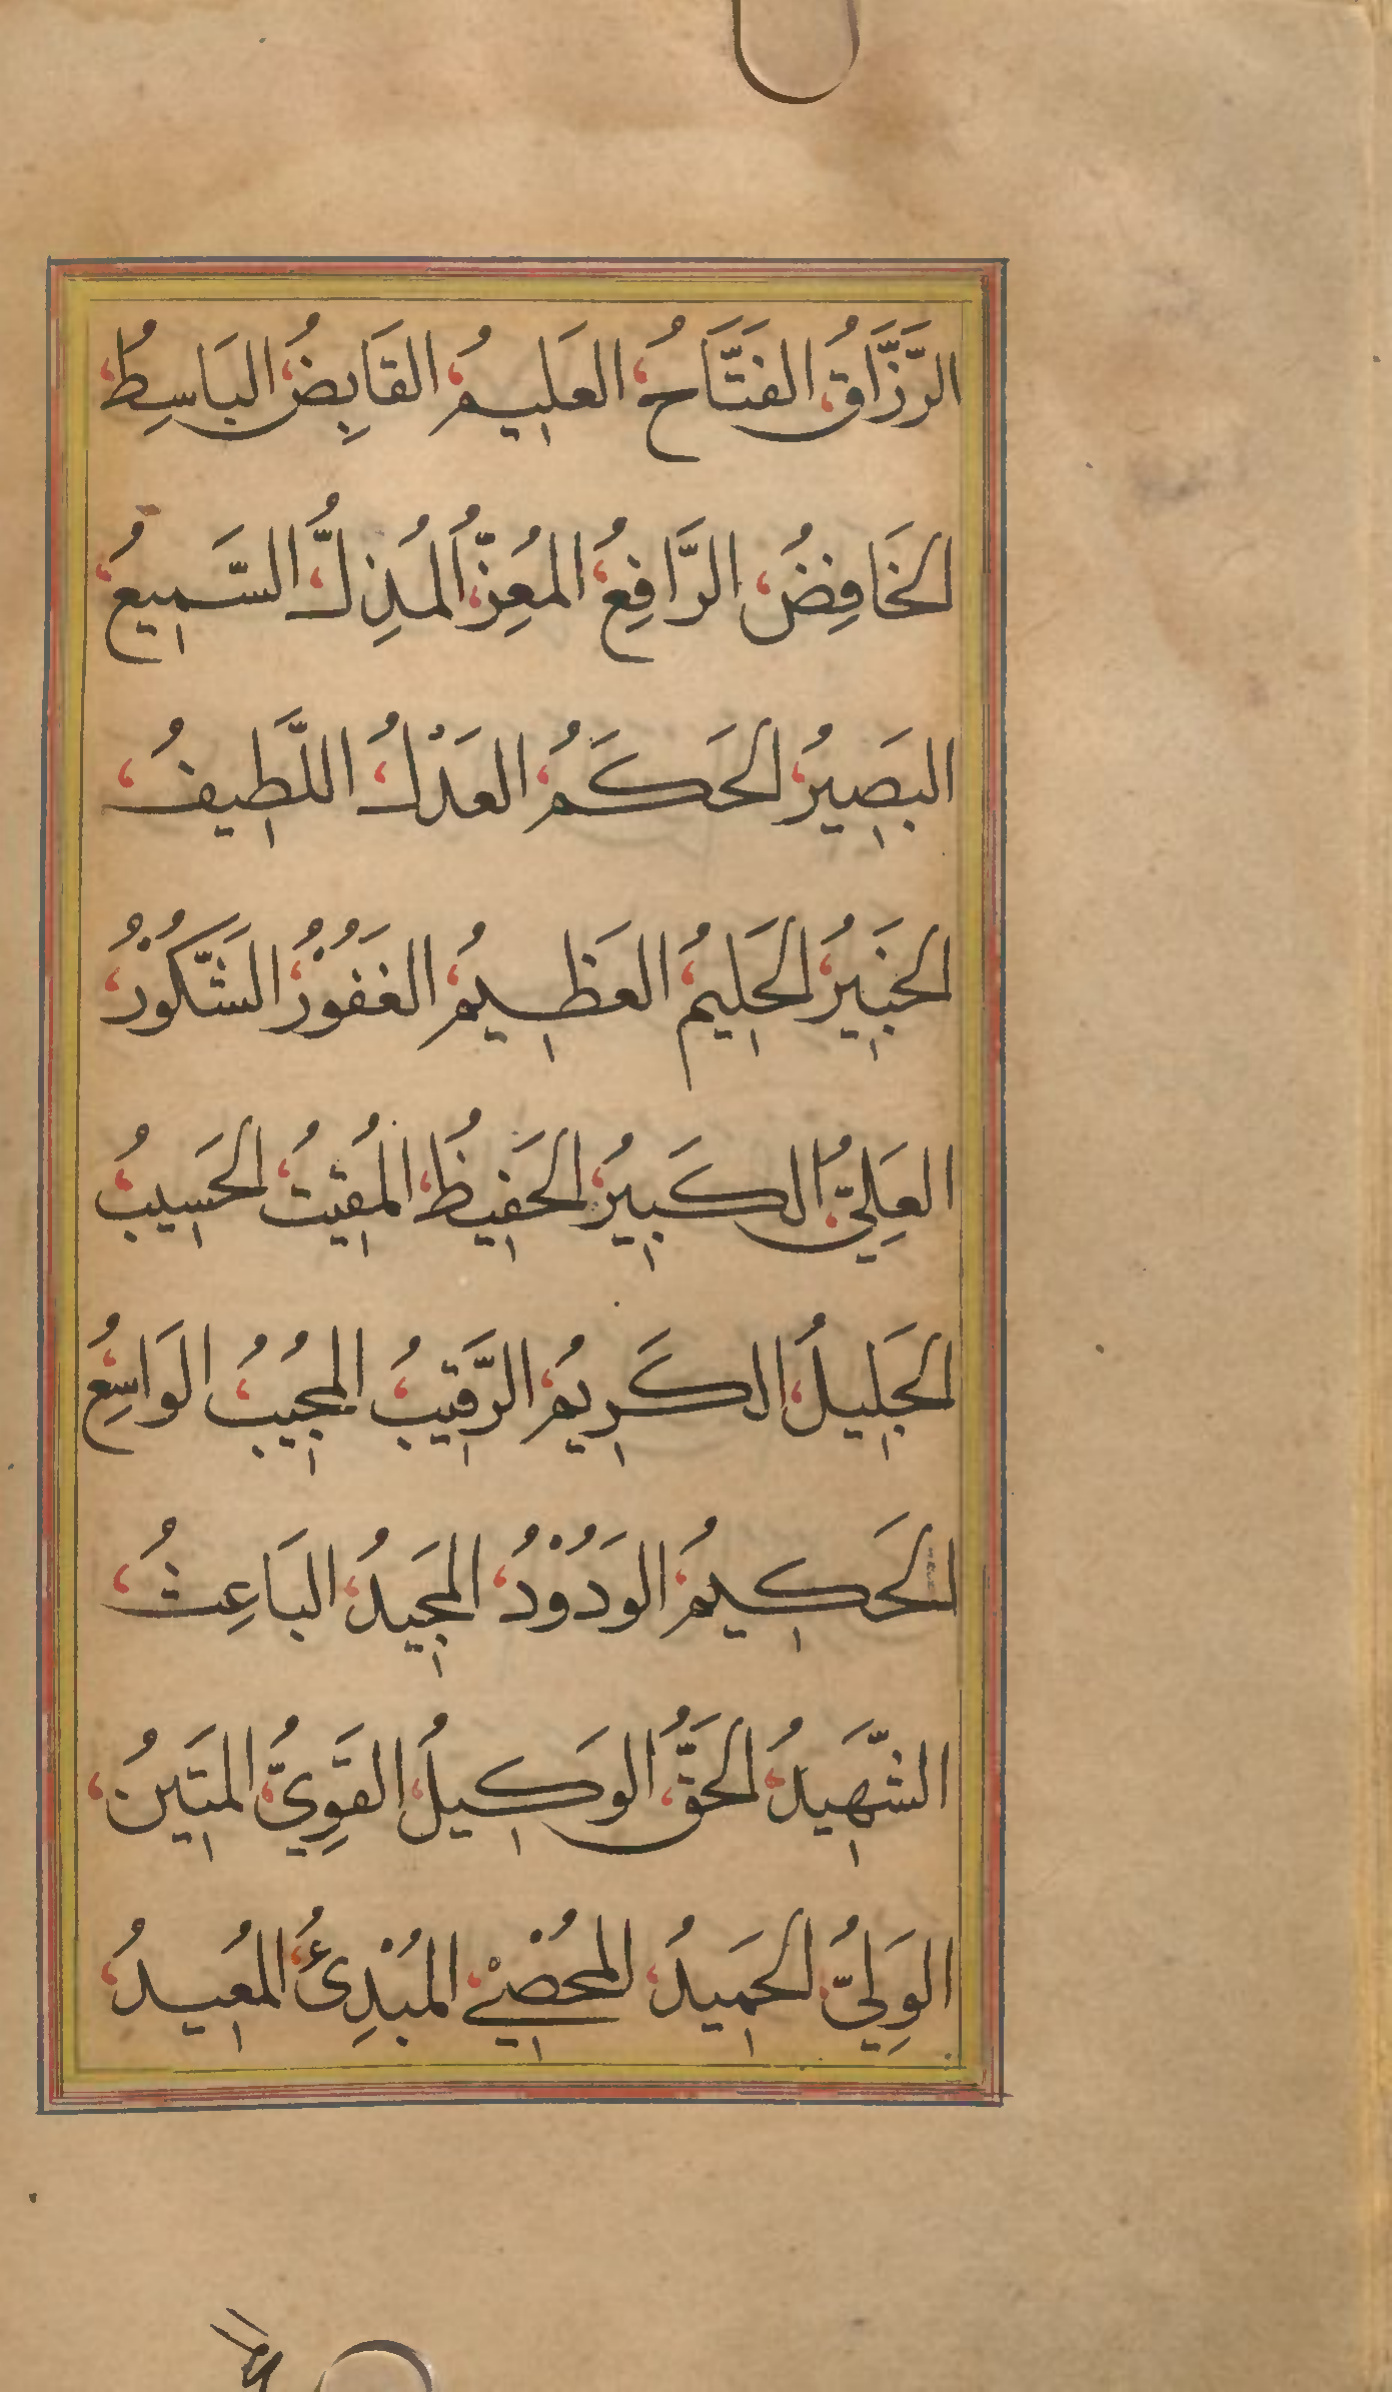 الرَّزَّاقُ، الفَتَّاحُ، العَلِيمُ، القَابِضُ، البَاسِطُ،
الخَافِضُ، الرَّافِعُ، المُعِزُّ، المُذِلُّ، السَّمِيعُ،
البَصِيرُ، الحَكَمُ، العَدْلُ، اللَّطِيفُ،
الخَبِيرُ، الحَلِيمُ، العَظِيمُ، الغَفُوْرُ، الشَّكُوْرُ،
العَلِيُّ، الكَبِيرُ، الحَفِيظُ، المُقِيتُ، الحَسِيبُ،
الجَلِيلُ، الكَرِيمُ، الرَّقِيبُ، المُجِيبُ، الوَاسِعُ،
الحَكِيمُ، الوَدُوْدُ، المَجِيدُ، البَاعِثُ،
الشَّهِيدُ، الحَقُّ، الوَكِيلُ، القَوِيُّ، المَتِينُ،
الوَلِيُّ، الحَمِيدُ، المُحْصِيْ، المُبْدِئُ، المُعِيدُ،